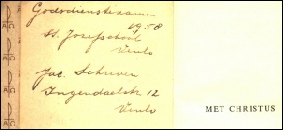 Godsdienstexam
1958
St. Jozefschool
Venlo
Jac. Schreven
Ingendaelstr 12
Venlo
MET CHRISTUS